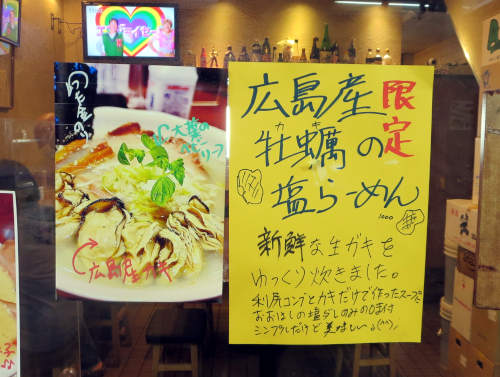 広島産
限定
牡蠣の
カキ
塩らーめん
1000
新鮮な生ガキを
ゆっくり炊きました。
利尻コンブとカキだけで作ったスープに
おおはしの塩ダレのみの味付
シンプルだけど美味しい
大葉の
広島産カキ